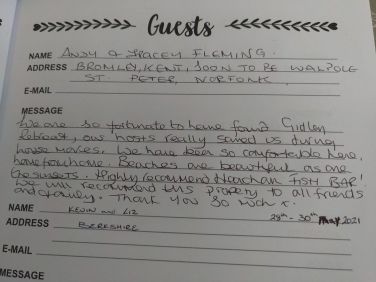 Guests
NAME ANDY & TRACEY FLEMING.
ADDRESS BROMLEY, KENT, SOON TO BE WALPOLE
ST. PETER, NORFOLK
E-MAIL
MESSAGE
We are so fortunate to have found Gidley
Retreat, our hosts really saved us during
house moves. We have been so comfortable here,
home from home. Beaches are beautiful as are
the sunsets. Highly recommend FISH BAR!
We will recommend this property to all friends
and family. Thank you so much x.
NAME KEVIN and LIZ 28th - 30th May 2021
ADDRESS BERKSHIRE
E-MAIL
MESSAGE